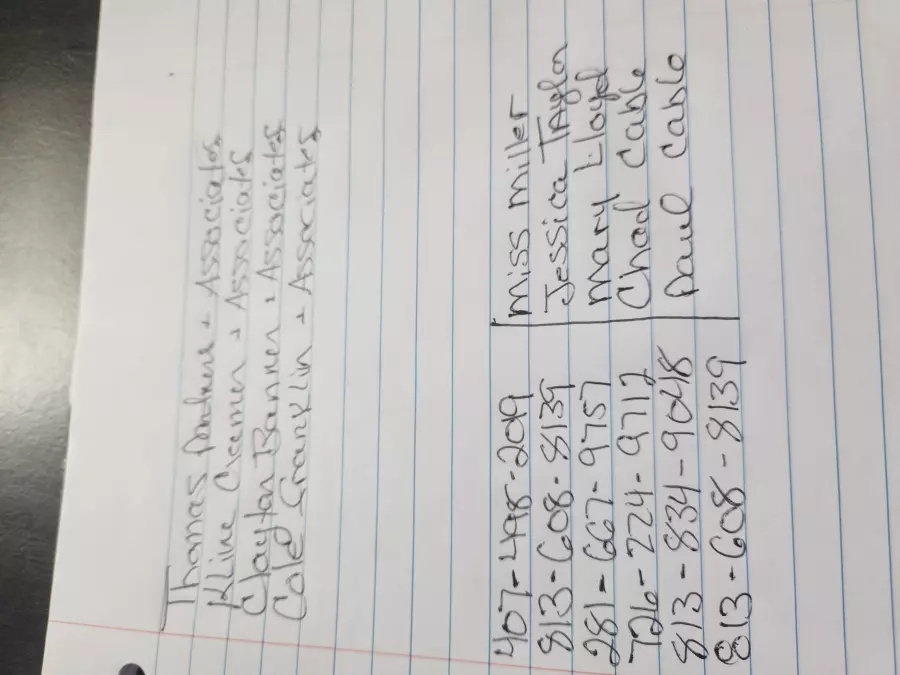 Thomas Partners + Associates
Kline Creamer + Associates
Clayton Banner + Associates
Cole Franklin + Associates
407-498-2019 Miss Miller
813-608-8139 Jessica Taylor
281-667-9757 Mary Lloyd
726-224-9712 Chad Cable
813-834-9048 Paul Cable
813-608-8139